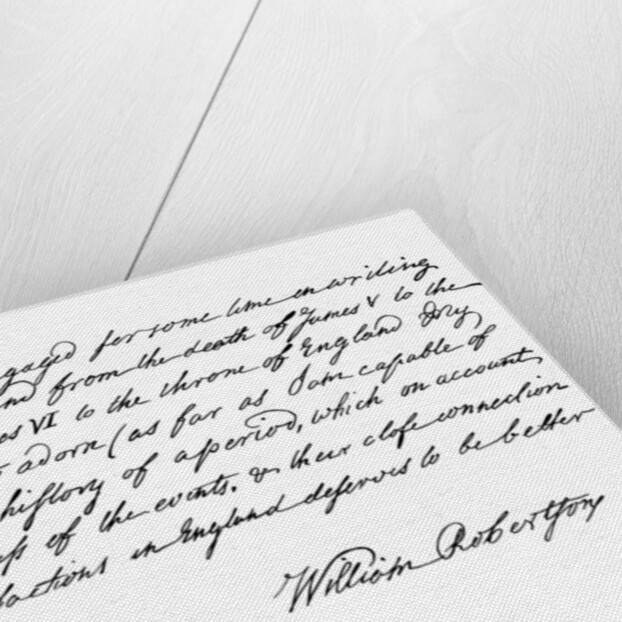 gaged for some time in writing
nd from the death of James V to the
es VI to the throne of England My
r adorn (as far as I am capable of
history of a period, which on account
ess of the events, & their close connection
actions in England deserves to be better
William Robertson